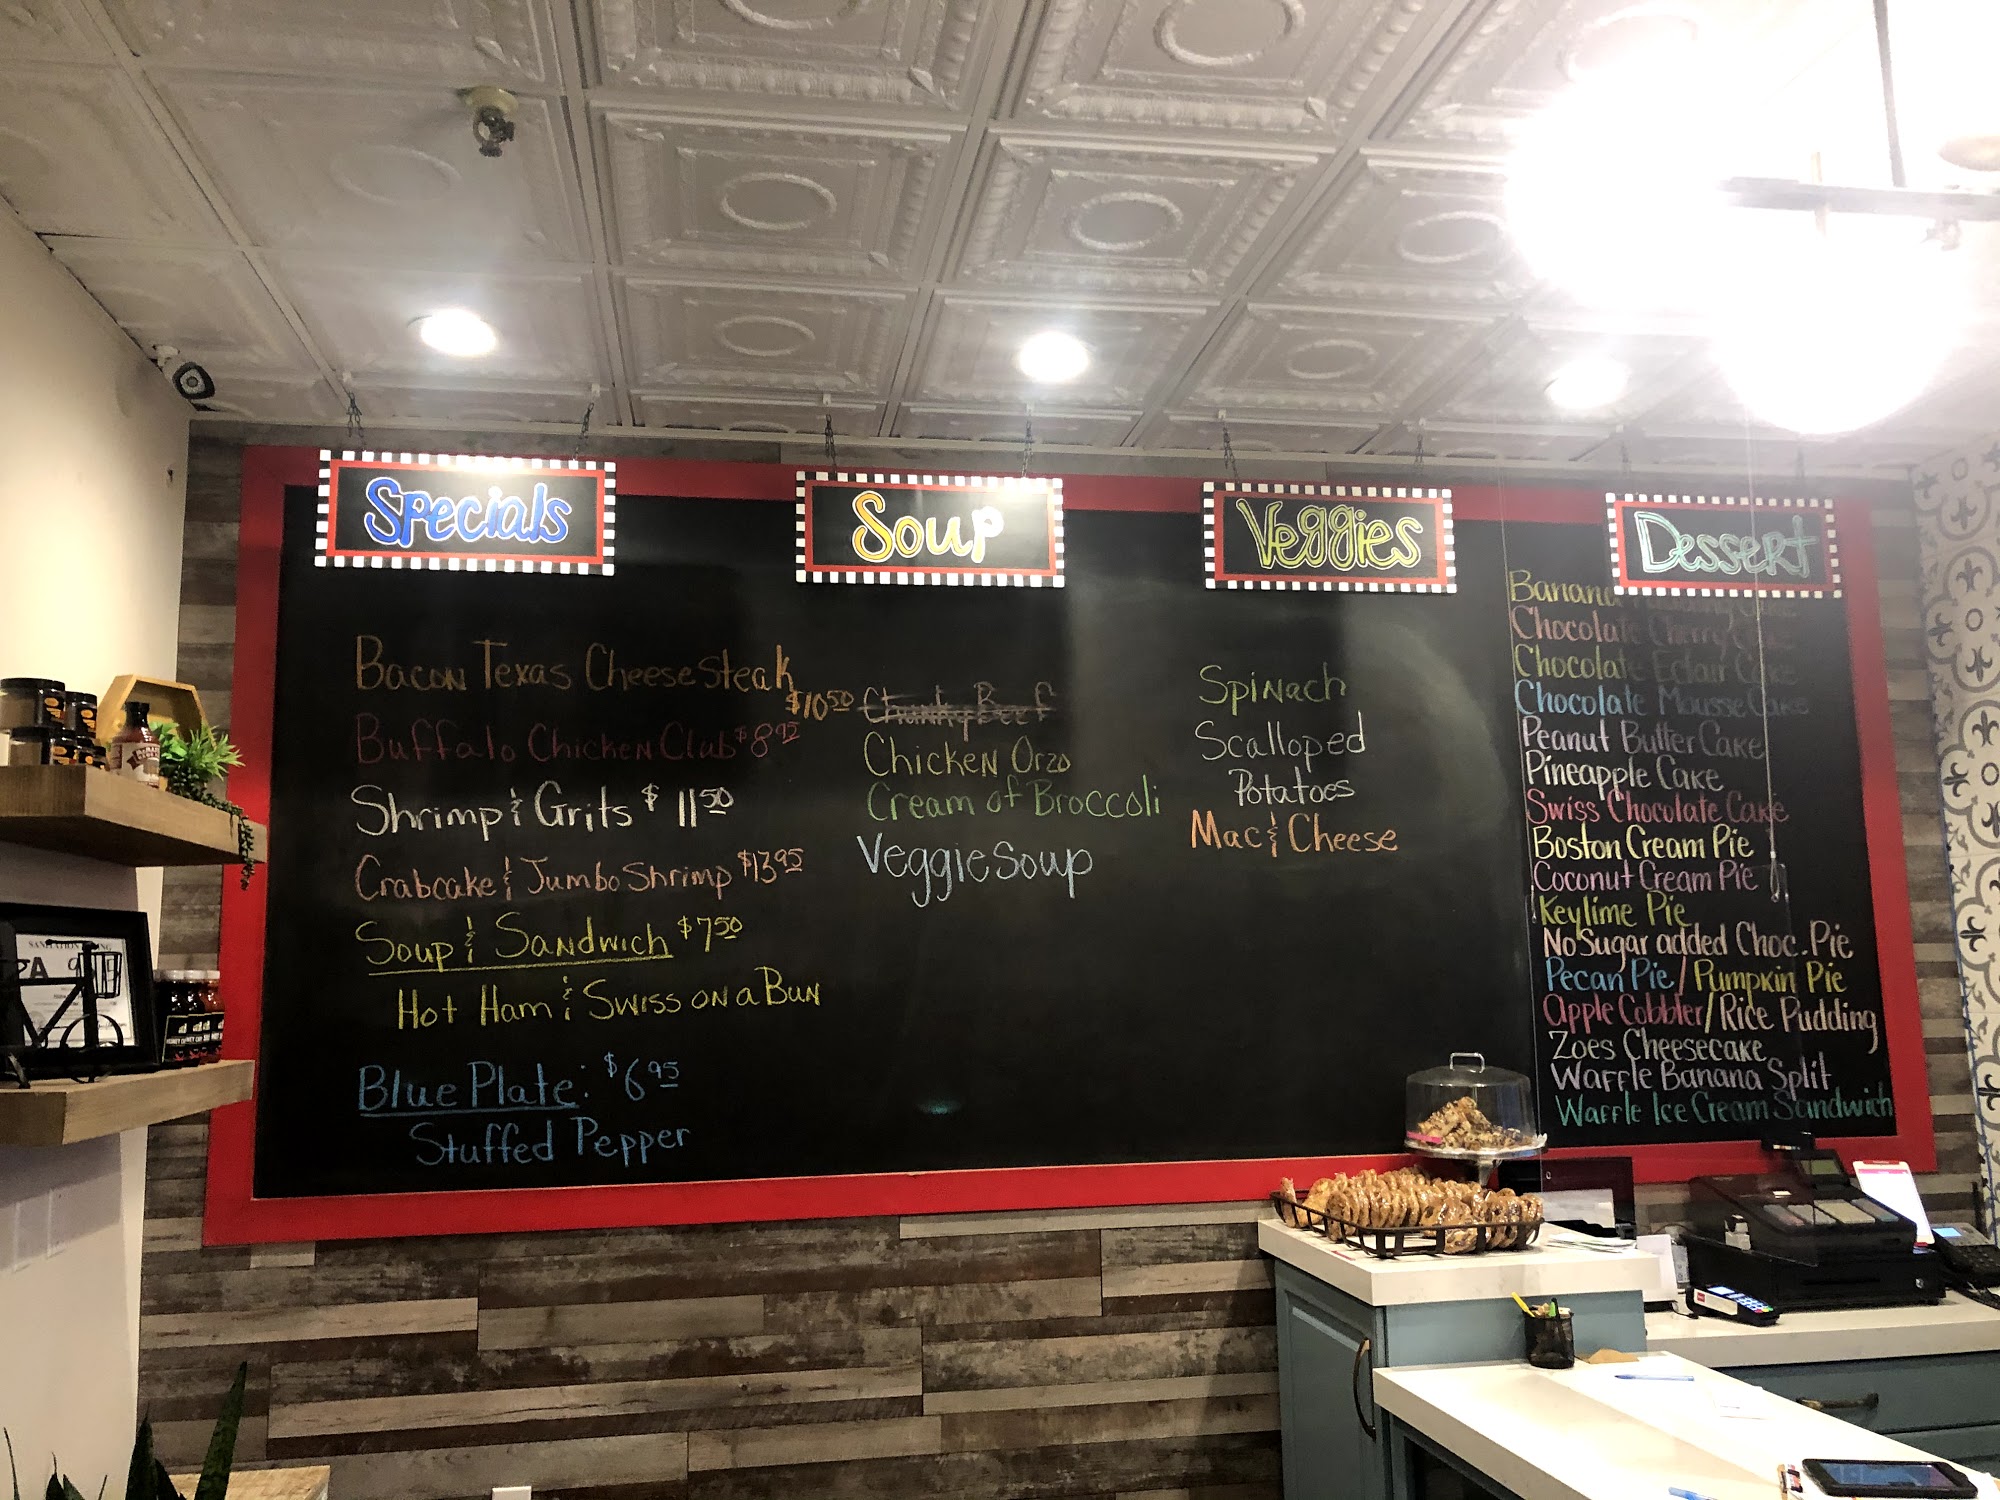 Specials
Bacon Texas Cheesesteak
$10 50
Buffalo Chicken Club $8 95
Shrimp & Grits $11 50
Crabcake & Jumbo Shrimp $13 95
Soup & Sandwich $7 50
Hot Ham & Swiss on a Bun
Blue Plate: $6 95
Stuffed Pepper
Soup
Chunky Beef
Chicken Orzo
Cream of Broccoli
Veggie Soup
Veggies
Spinach
Scalloped
Potatoes
Mac & Cheese
Dessert
Banana Pudding Cake
Chocolate Cherry Cake
Chocolate Eclair Cake
Chocolate Mousse Cake
Peanut Butter Cake
Pineapple Cake
Swiss Chocolate Cake
Boston Cream Pie
Coconut Cream Pie
Keylime Pie
No Sugar added Choc. Pie
Pecan Pie / Pumpkin Pie
Apple Cobbler / Rice Pudding
Zoes Cheesecake
Waffle Banana Split
Waffle Ice Cream Sandwich
SANITATION
A